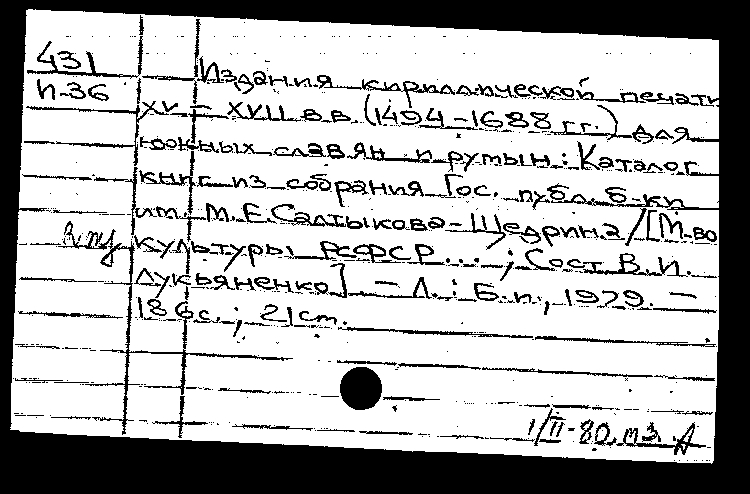 431
И-36
Издания кириллической печати
XV – XVII в.в. (1494-1688 гг.) для
южных славян и румын: Каталог
книг из собрания Гос. публ. б-ки
им. М.Е.Салтыкова-Щедрина/[М-во
культуры РСФСР ...; Сост. В.И.
Лукьяненко]. – Л.: Б.и., 1979. –
186с.; 21см.
1/II-80. тз. А